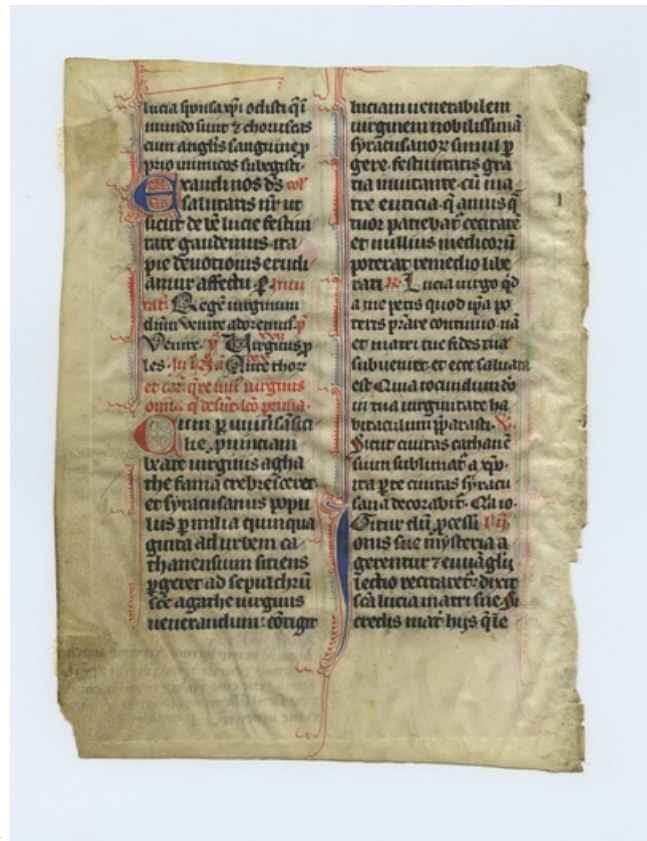 lucia sponsa xpi odisti q̄
mundo sunt ⁊ choruscas
cum anglis sanguine ꝓ
prio inimicos subegisti
Exaudi nos ds
salutaris nr̄ ut
sicut de bē lucie festiui
tate gaudemus ita
pie deuotionis erudi
amur affectu ꝑ
Regē uirginum
dn̄m uenite adoremus
Venite Virginis ꝓ
les Ante thor
uirginis
Cum ꝑ
lie ꝓuinciam
beate uirginis agha
the fama crebresceret
et syracusanus popu
lus ꝑ milia quinqua
ginta ad urbem ca
thanensium sitiens
ꝑgeret ad sepulchrū
sc̄e agathe uirginis
uenerandum contigit
luciam uenerabilem
uirginem nobilissimā
syracusanoꝝ simul ꝑ
gere festiuitatis gra
tia inuitante cū ma
tre euticia q̄ annis q̄
tuor patiebat᷑ cecitatē
et nullius medicorū
poterat remedio libe
rari Lucia uirgo qd̄
a me petis quod ip̄a po
teris p̄stare continuo nā
et matri tue fides tua
subuenit et ecce saluata
est Quia iocundum dō
in tua uirginitate ha
bitaculum p̄parasti V
Sicut ciuitas cathanē
sium sublimat᷑ a xp̄o
ita ꝑ te ciuitas syracu
sana decorabit᷑ Quia io
Igitur dū ꝓcessi
onis sue mysteria a
gerentur ⁊ euuāgli
lectio recitaret᷑ dixit
scā lucia matri sue Si
credis mat᷑ hijs q̄ le